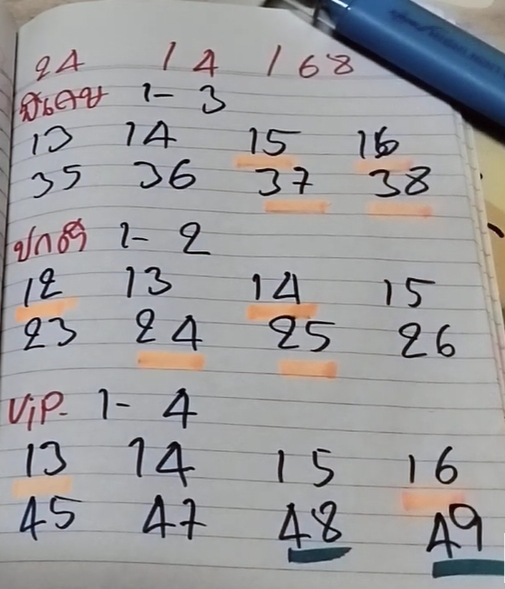 24 14 168
พิเศษ 1-3
13 14 15 16
35 36 37 38
ปกติ 1-2
12 13 14 15
23 24 25 26
ViP. 1-4
13 14 15 16
45 47 48 49